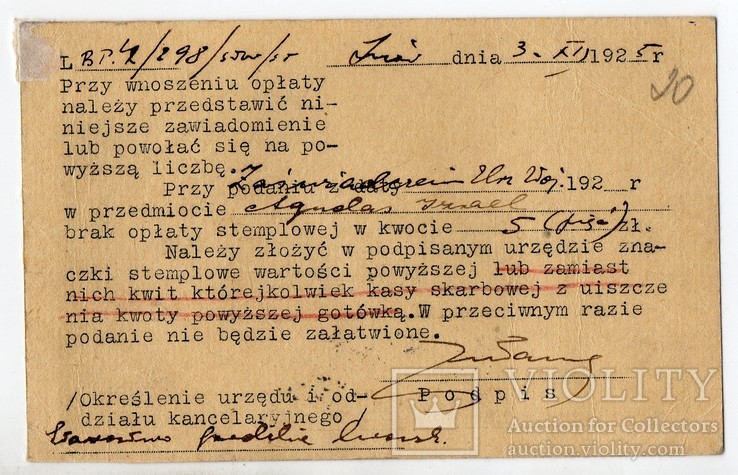 L dnia 3. XII 1925 r
20
Przy wnoszeniu opłaty
należy przedstawić ni-
niejsze zawiadomienie
lub powołać się na po-
wyższą liczbę.
Przy podaniu z daty 192 r
w przedmiocie Agudas Izrael
brak opłaty stemplowej w kwocie 5 (pięć) zł.
Należy złożyć w podpisanym urzędzie zna-
czki stemplowe wartości powyższej lub zamiast
nich kwit którejkolwiek kasy skarbowej z uiszcze
nia kwoty powyższej gotówką.W przeciwnym razie
podanie nie będzie załatwione.
/Określenie urzędu i od- Podpis
działu kancelaryjnego
Starostwo grodzkie
VIOLITY
Auction for Collectors
auction.violity.com